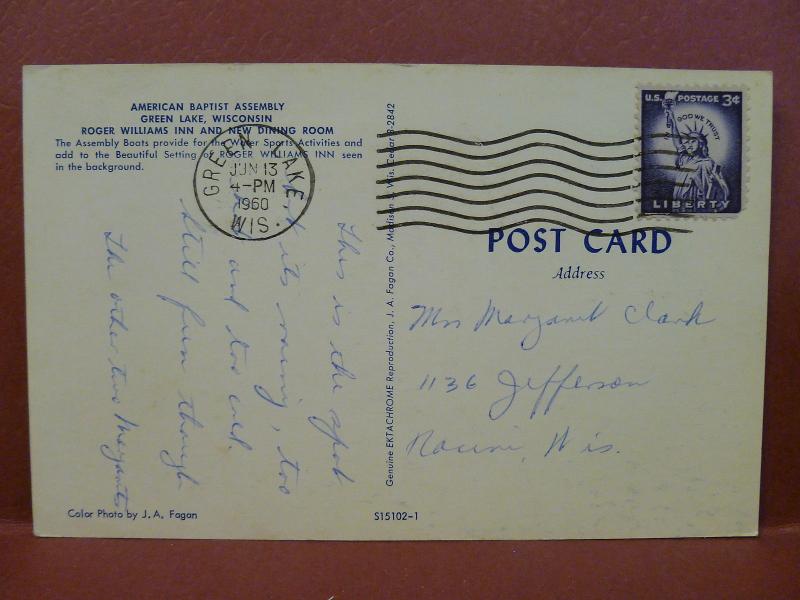 AMERICAN BAPTIST ASSEMBLY
GREEN LAKE, WISCONSIN
ROGER WILLIAMS INN AND NEW DINING ROOM
The Assembly Boats provide for the Water Sports Activities and
add to the Beautiful Setting of ROGER WILLIAMS INN seen
in the background.
GREEN LAKE
JUN 13
4-PM
1960
WIS.
This is the spot
but its rainy, too
and too cold.
Still fun though
The other two Margarets
Color Photo by J. A. Fagan
Genuine EKTACHROME Reproduction, J. A. Fagan Co., Madison 5, Wis. Cedar 3-2842
S15102-1
U.S. POSTAGE 3¢
IN GOD WE TRUST
LIBERTY
POST CARD
Address
Mrs Margaret Clark
1136 Jefferson
Racine, Wis.